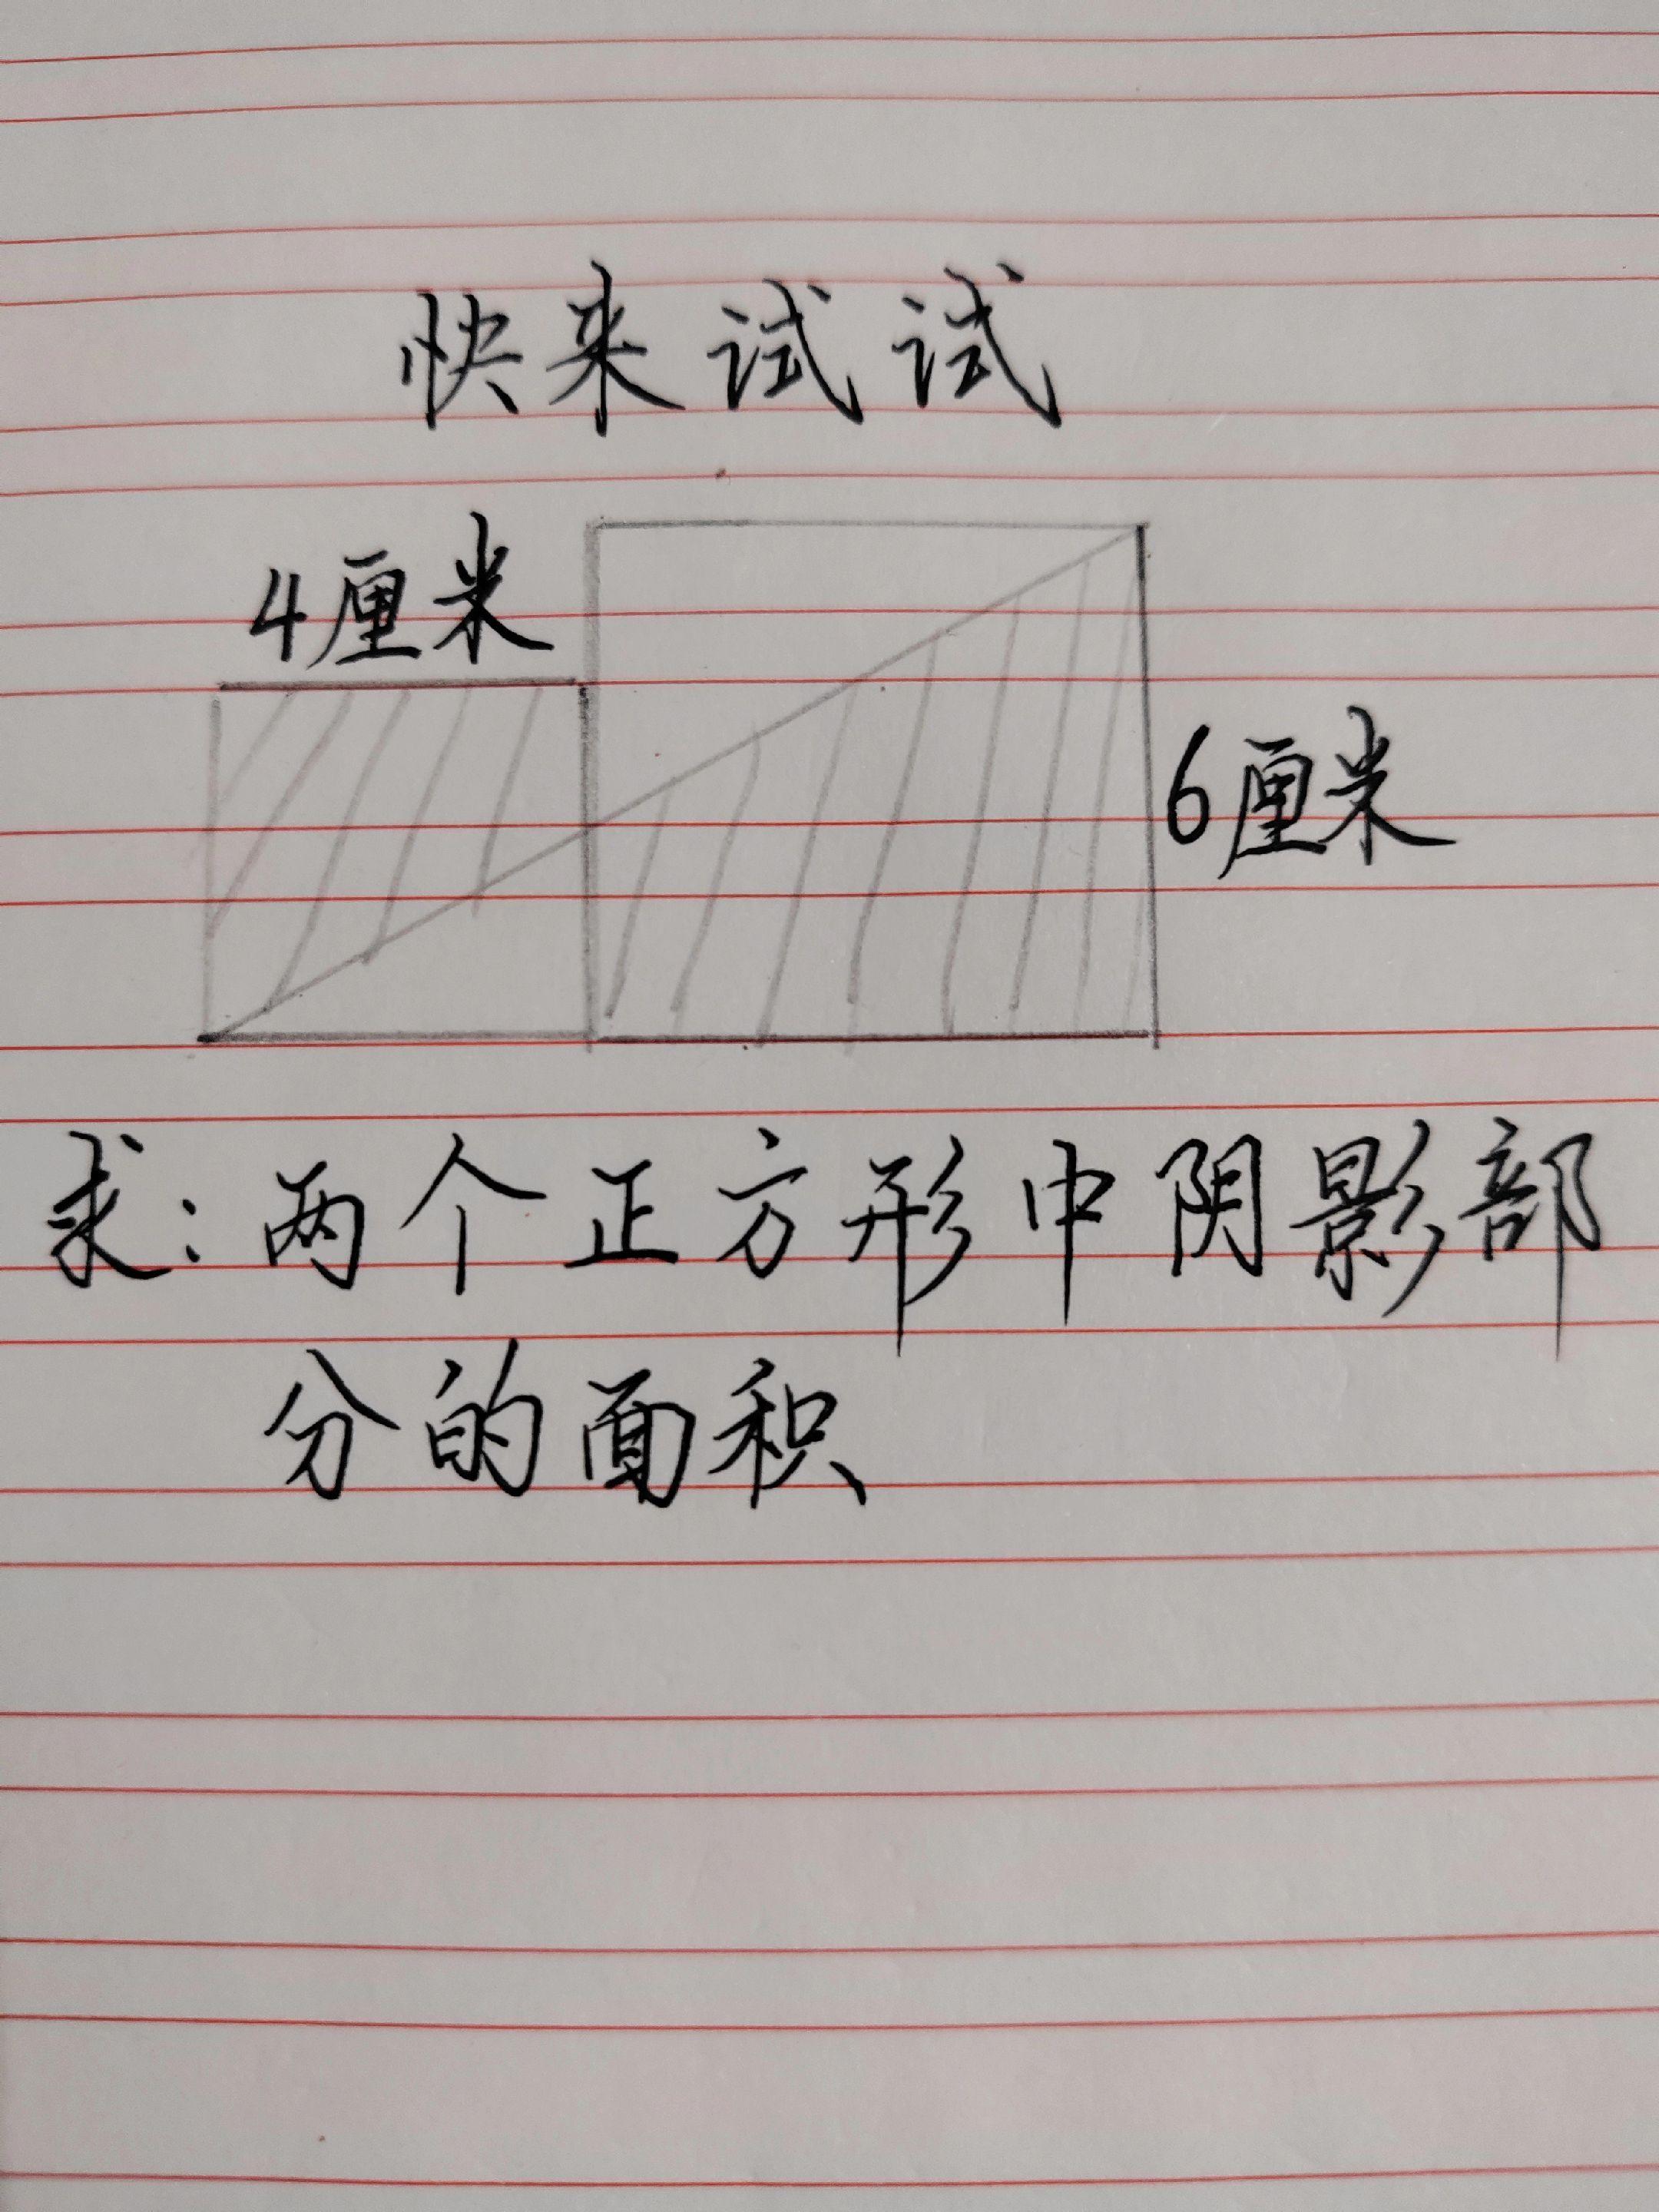 快来试试
4厘米
6厘米
求：两个正方形中阴影部
分的面积